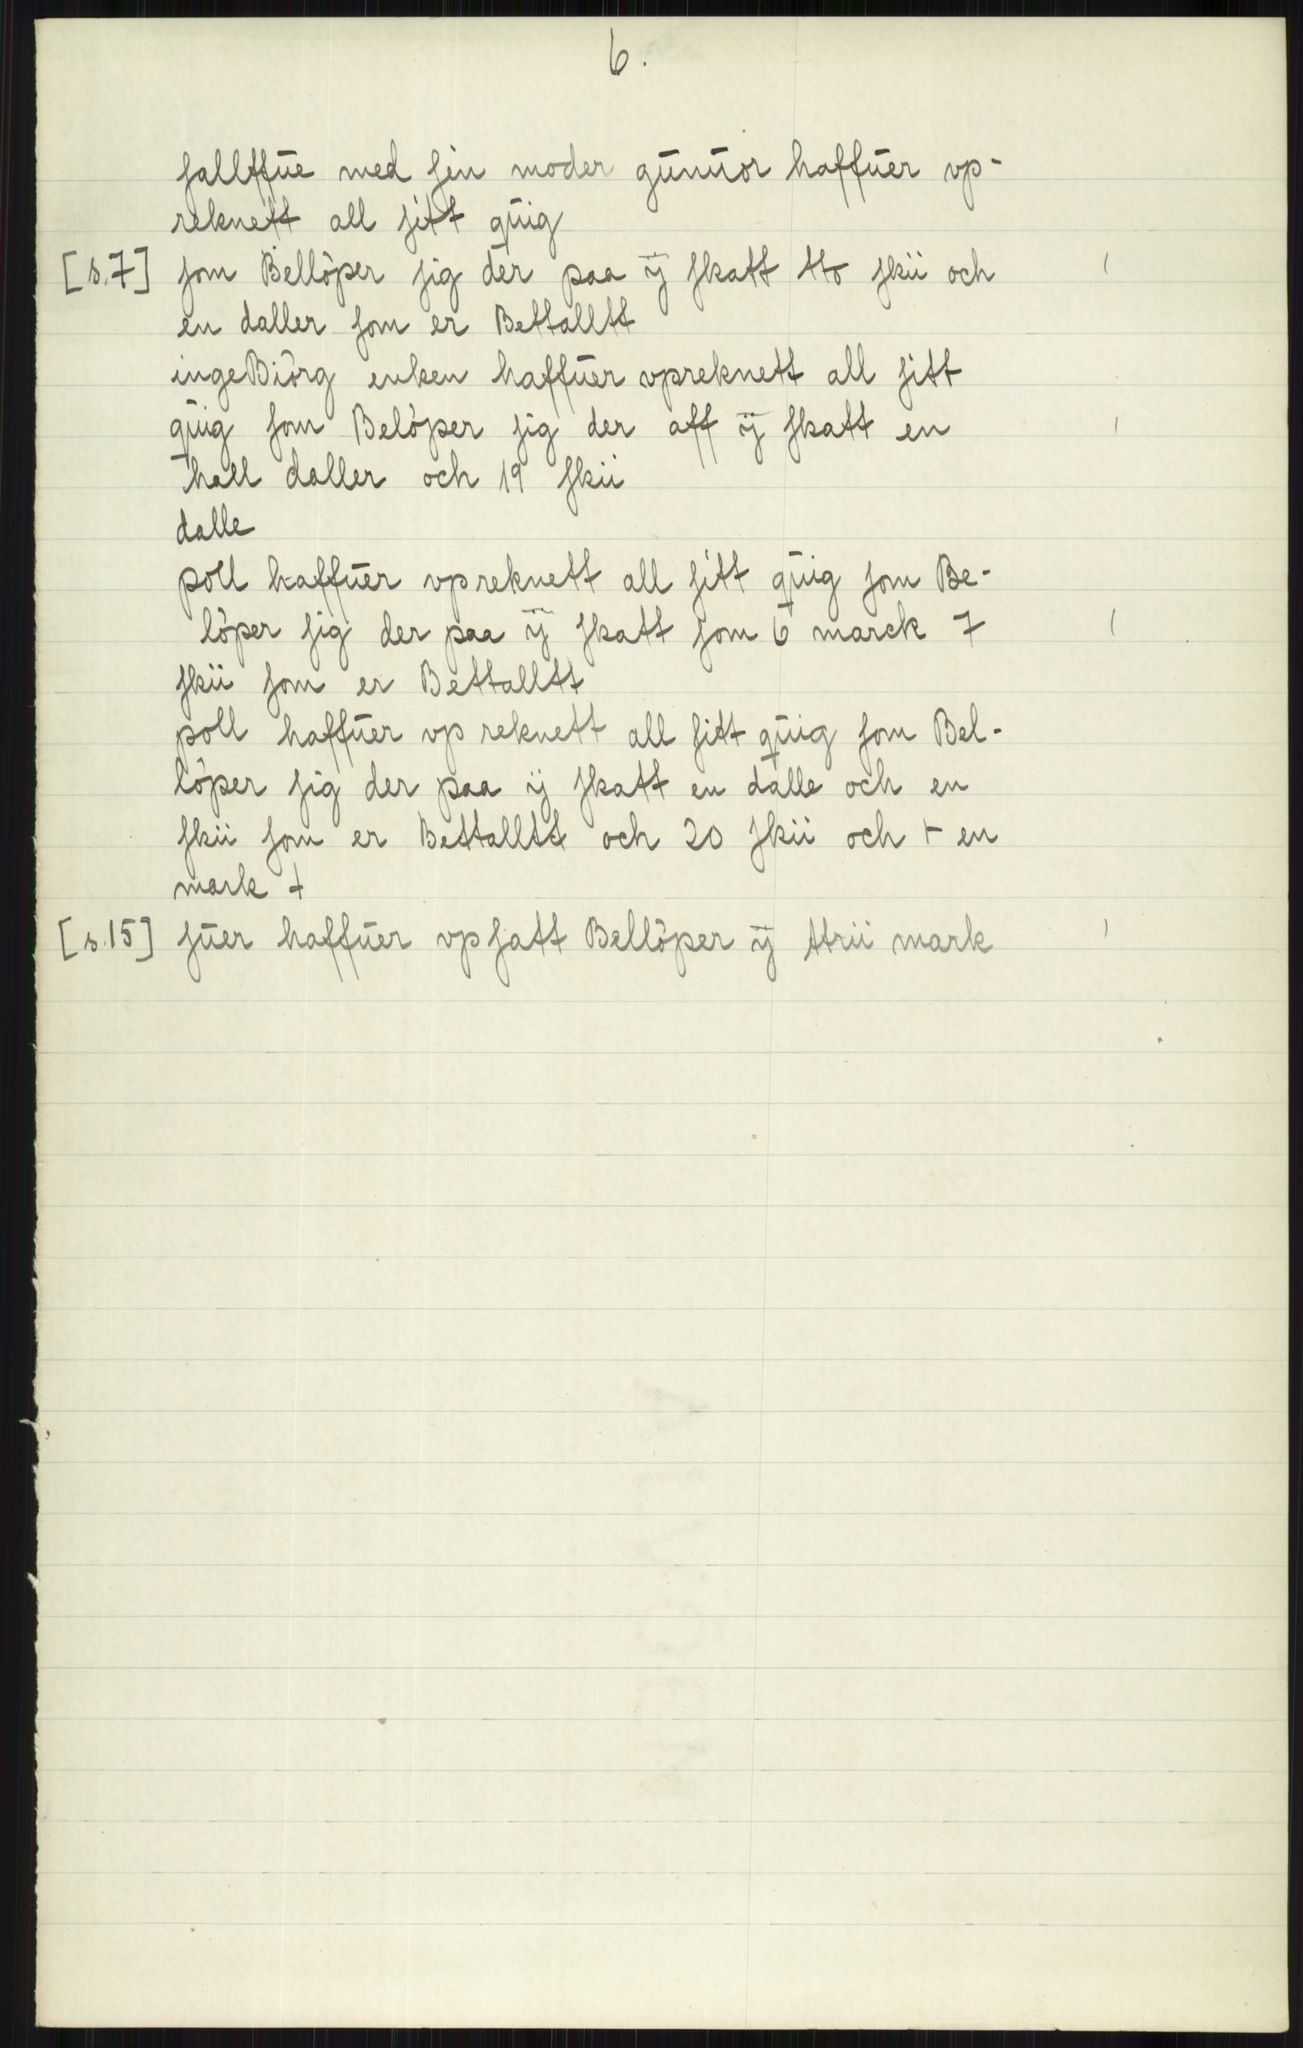 6.
ſallffūe med ſin moder gūnūor haffūer vp-
reknett all ſitt qūig
[s.7] ſom Bellöper ſig der paa ÿ ſkatt tto ſkii och
en daller ſom er Bettalltt
ingeBiörg enken haffūer vpreknett all ſitt
qūig ſom Belöper ſig der aff ÿ ſkatt en
hall daller och 19 ſkii
dalle
poll haffūer vpreknett all ſitt qūig ſom Be-
löper ſig der paa ÿ ſkatt ſom 6 marck 7
ſkii ſom er Bettalltt
poll haffūer vp reknett all ſitt qūig ſom Bel-
löper ſig der paa ij ſkatt en dalle och en
ſkii ſom er Bettalltt och 20 ſkii och + en
mark +
[s.15] ſūer haffūer vpſatt Bellöper ÿ ttrii mark